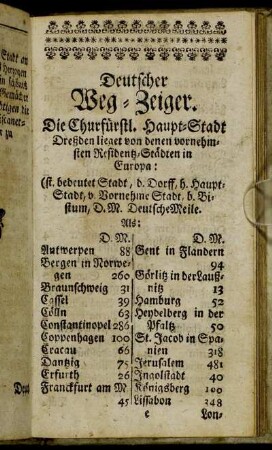 Deutscher
Weg-Zeiger.
Die Churfürstl. Haupt-Stadt
Dreßden lieget von denen vornehm-
sten Residentz-Städten in
Europa:
(st. bedeutet Stadt, d. Dorff, h. Haupt-
Stadt, v. Vornehme Stadt, b. Bi-
stum, D. M. Deutsche Meile.
Als:
D. M.
Antwerpen 88
Bergen in Norwe-
gen 260
Braunschweig 31
Cassel 39
Cölln 63
Constantinopel 286
Coppenhagen 100
Cracau 66
Dantzig 75
Erfurth 26
Franckfurt am M
45
D. M.
Gent in Flandern
94
Görlitz in der Lauß-
nitz 13
Hamburg 52
Heydelberg in der
Pfaltz 50
St. Jacob in Spa-
nien 318
Jerusalem 481
Ingolstadt 40
Königsberg 100
Lissabon 348
e Lon-